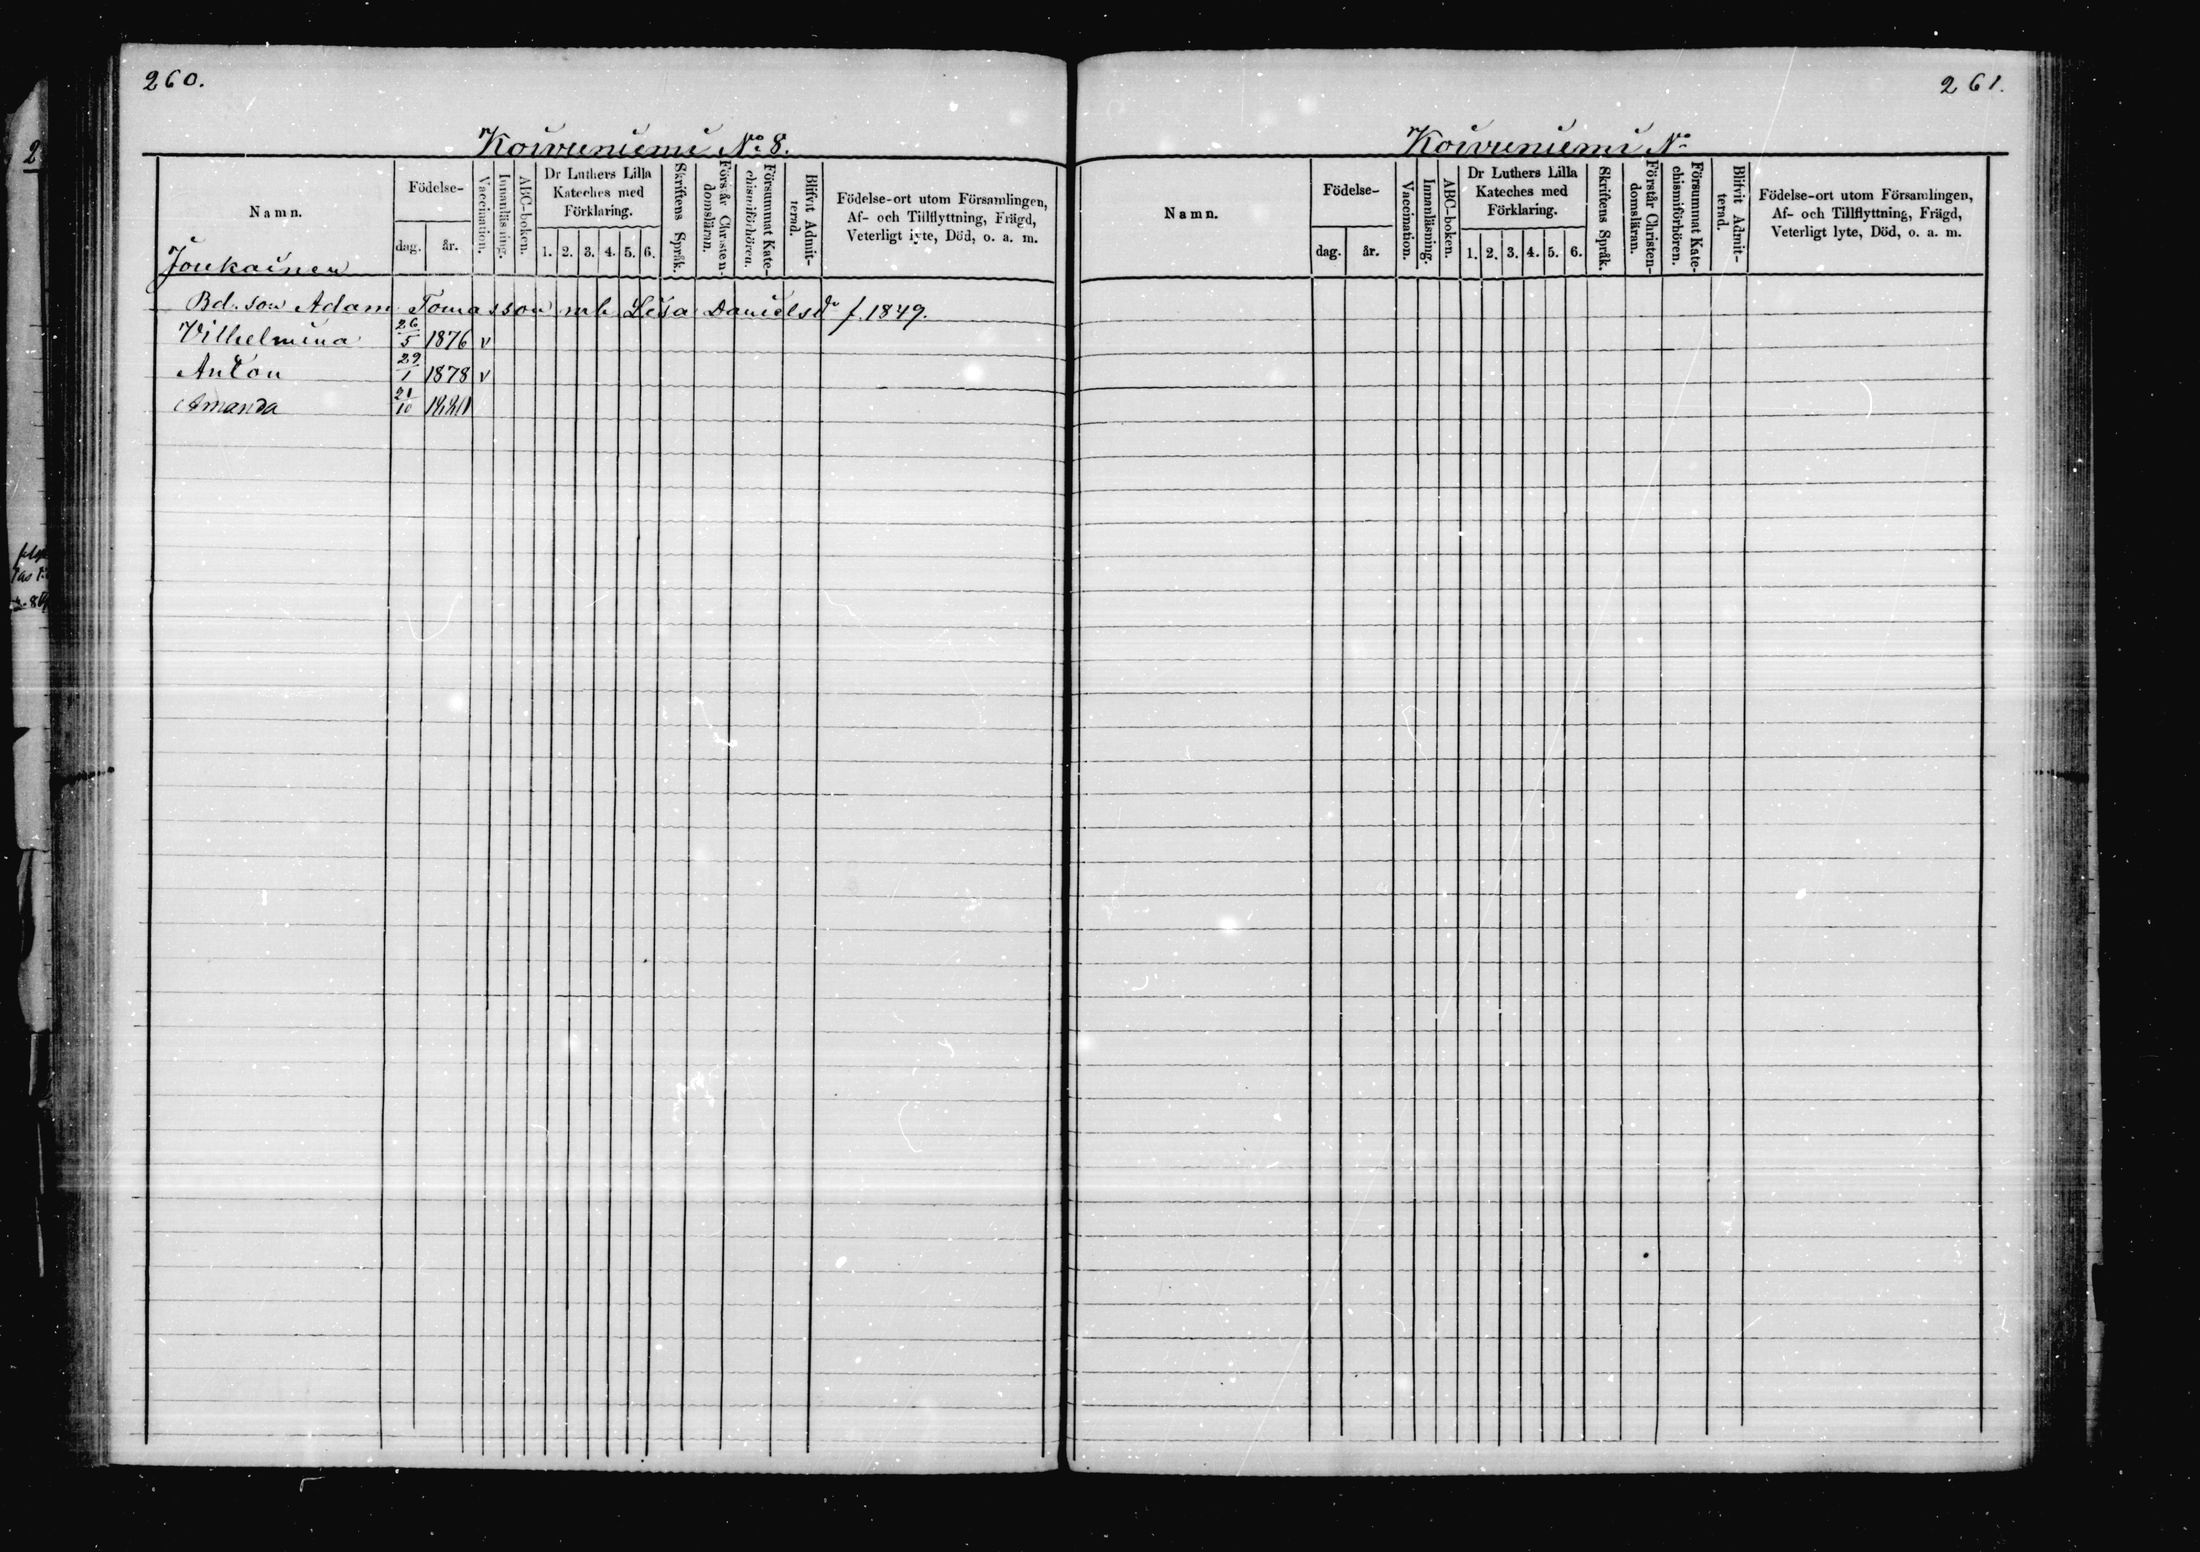 260.
Koivuniemi No 8.
Namn.
Födelse-
dag.
år.
Vaccination.
Innanläsning.
ABC-boken.
Dr Luthers Lilla
Kateches med
Förklaring.
1. 2. 3. 4. 5. 6.
Skriftens Språk.
Förstår Christen-
domsläran.
Försummat Kate-
chismiförhören.
Blifvit Admit-
terad.
Födelse-ort utom Församlingen,
Af- och Tillflyttning, Frägd,
Veterligt lyte, Död, o. a. m.
Joukainen
Bd. son Adam Tomasson mb Lisa Danielsdr f. 1849.
Vilhelmina 26/5 1876 v
Anton 29/1 1878 v
Amanda 21/10
261.
Koivuniemi No
Namn.
Födelse-
dag.
år.
Vaccination.
Innanläsning.
ABC-boken.
Dr Luthers Lilla
Kateches med
Förklaring.
1. 2. 3. 4. 5. 6.
Skriftens Språk.
Förstår Christen-
domsläran.
Försummat Kate-
chismiförhören.
Blifvit Admit-
terad.
Födelse-ort utom Församlingen,
Af- och Tillflyttning, Frägd,
Veterligt lyte, Död, o. a. m.